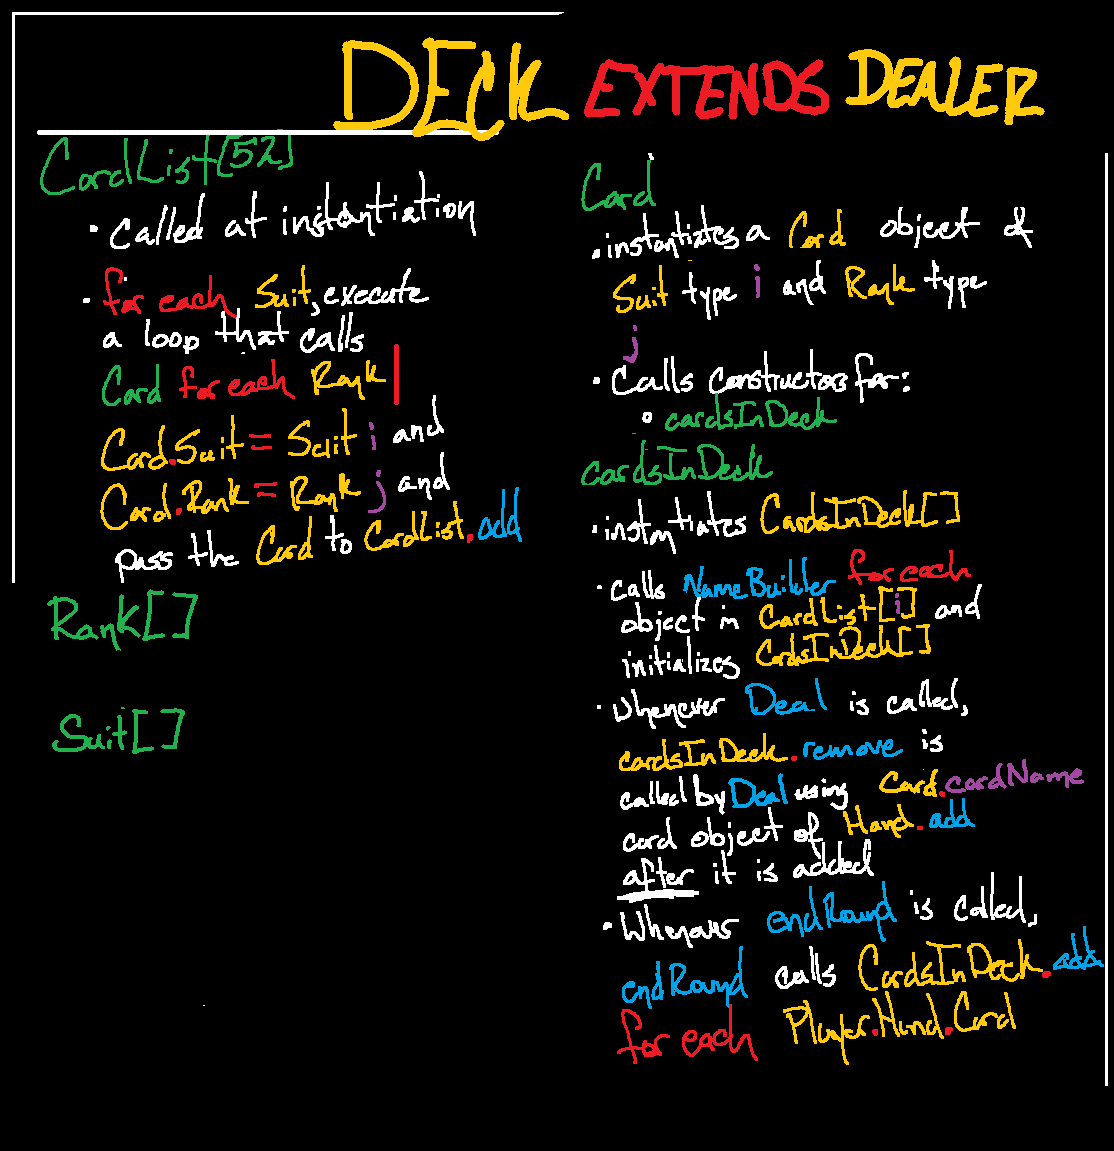 DECK EXTENDS DEALER
CardList[52]
• Called at instantiation
• for each Suit, execute
a loop that calls
Card for each Rank |
Card.Suit = Suit i and
Card.Rank = Rank j and
pass the Card to CardList.add
Rank[]
Suit[]
Card
• instantiates a Card object of
Suit type i and Rank type
j
• Calls constructors for:
○ cardsInDeck
cardsInDeck
• instantiates CardsInDeck[]
• calls NameBuilder for each
object in CardList[i] and
initializes CardsInDeck[]
• Whenever Deal is called,
cardsInDeck.remove is
called by Deal using Card.cardName
card object of Hand.add
after it is added
• Whenever endRound is called,
endRound calls CardsInDeck.add
for each Player.Hand.Card